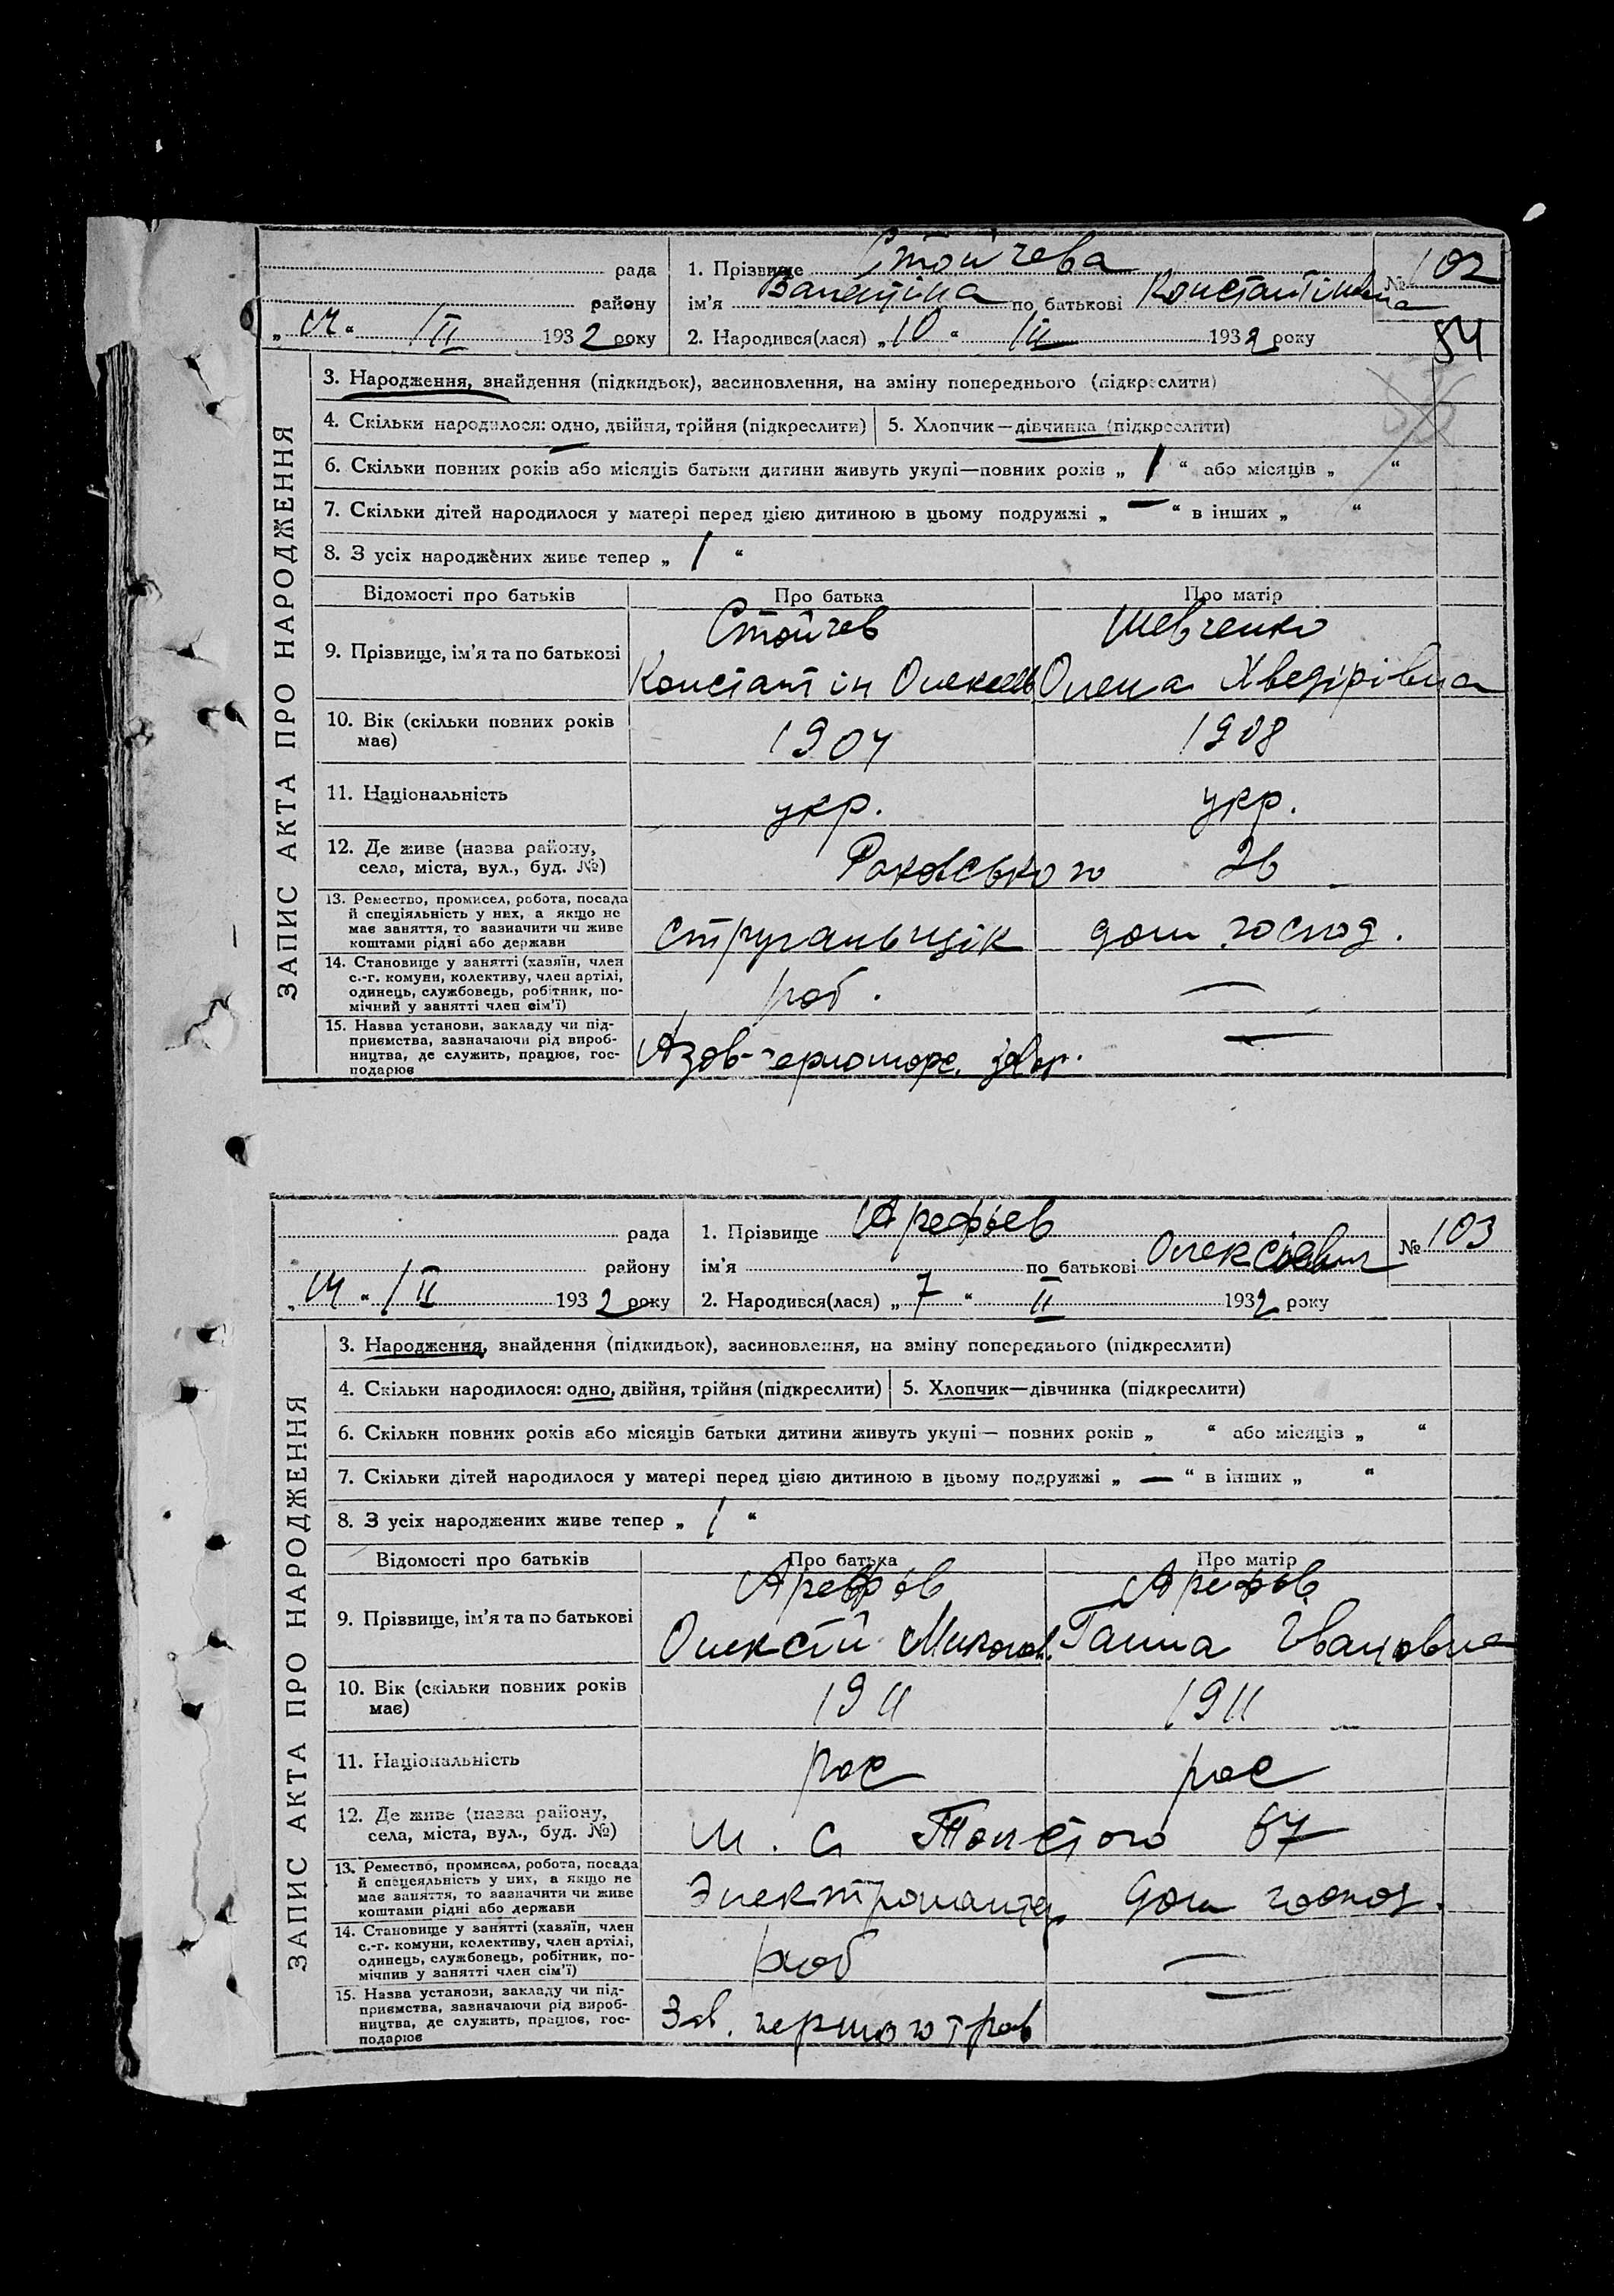 рада 1. Прізвище Стойчева № 102
району ім’я Валентіна по батькові Константіновна
„14“ II 1932 року 2. Народився(лася) „10“ II 1932 року
54
ЗАПИС АКТА ПРО НАРОДЖЕННЯ
3. Народження, знайдення (підкидьок), засиновлення, на зміну попереднього (підкреслити)
4. Скільки народилося: одно, двійня, трійня (підкреслити) 5. Хлопчик—дівчинка (підкреслити)
6. Скільки повних років або місяців батьки дитини живуть укупі—повних років „ 1 “ або місяців „ “
7. Скільки дітей народилося у матері перед цією дитиною в цьому подружжі „ — “ в інших „ “
8. З усіх народжених живе тепер „ 1 “
Відомості про батьків Про батька Про матір
Стойчев Шевченко
9. Прізвище, ім’я та по батькові
Константін Олексів Олена Хведірівна
10. Вік (скільки повних років
має) 1904 1908
11. Національність укр. укр.
12. Де живе (назва району,
села, міста, вул., буд. №) Раковського 26
13. Ремество, промисел, робота, посада
й спеціяльність у них, а якщо не
має заняття, то зазначити чи живе
коштами рідні або держави стругальщік дом господ.
14. Становище у занятті (хазяїн, член
с.-г. комуни, колективу, член артілі,
одинець, службовець, робітник, по-
мічний у занятті член сім’ї) роб. —
15. Назва установи, закладу чи під-
приємства, зазначаючи рід вироб-
ництва, де служить, працює, гос-
подарює Азов-черномор. —
рада 1. Прізвище Арефьев № 103
району ім’я по батькові Олексієвич
„14“ II 1932 року 2. Народився(лася) „7“ II 1932 року
ЗАПИС АКТА ПРО НАРОДЖЕННЯ
3. Народження, знайдення (підкидьок), засиновлення, на зміну попереднього (підкреслити)
4. Скільки народилося: одно, двійня, трійня (підкреслити) 5. Хлопчик—дівчинка (підкреслити)
6. Скільки повних років або місяців батьки дитини живуть укупі — повних років „ “ або місяців „ “
7. Скільки дітей народилося у матері перед цією дитиною в цьому подружжі „ — “ в інших „ “
8. З усіх народжених живе тепер „ 1 “
Відомості про батьків Про батька Про матір
Арефьв Арефьв
9. Прізвище, ім’я та по батькові
Олексій Микол. Ганна Івановна
10. Вік (скільки повних років
має) 1911 1911
11. Національність рос рос
12. Де живе (назва району,
села, міста, вул., буд. №) Толстого 67
13. Ремество, промисел, робота, посада
й спецеяльність у них, а якщо не
має заняття, то зазначити чи живе
коштами рідні або держави Электромонтер дом господ.
14. Становище у занятті (хазяїн, член
с.-г. комуни, колективу, член артілі,
одинець, службовець, робітник, по-
мічнив у занятті член сім’ї) роб —
15. Назва установи, закладу чи під-
приємства, зазначаючи рід вироб-
ництва, де служить, працює, гос-
подарює Зав. першого трав —